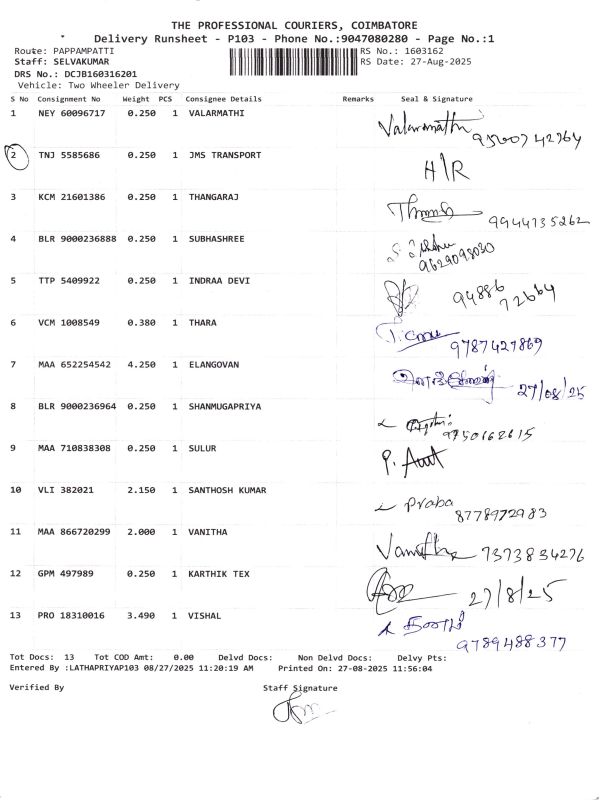 THE PROFESSIONAL COURIERS, COIMBATORE
Delivery Runsheet - P103 - Phone No.:9047080280 - Page No.:1
Route: PAPPAMPATTI RS No.: 1603162
Staff: SELVAKUMAR RS Date: 27-Aug-2025
DRS No.: DCJB160316201
Vehicle: Two Wheeler Delivery
S No Consignment No Weight PCS Consignee Details Remarks Seal & Signature
1 NEY 60096717 0.250 1 VALARMATHI Valarmathi
2 TNJ 5585686 0.250 1 JMS TRANSPORT H\R
3 KCM 21601386 0.250 1 THANGARAJ 9944735262
4 BLR 9000236888 0.250 1 SUBHASHREE 9629098030
5 TTP 5409922 0.250 1 INDRAA DEVI 94886 72664
6 VCM 1008549 0.380 1 THARA 9787427869
7 MAA 652254542 4.250 1 ELANGOVAN 27/08/25
8 BLR 9000236964 0.250 1 SHANMUGAPRIYA 9750162615
9 MAA 710838308 0.250 1 SULUR
10 VLI 382021 2.150 1 SANTHOSH KUMAR Praba 8778972983
11 MAA 866720299 2.000 1 VANITHA Vanitha 7373834276
12 GPM 497989 0.250 1 KARTHIK TEX 27/8/25
13 PRO 18310016 3.490 1 VISHAL 9789488377
Tot Docs: 13 Tot COD Amt: 0.00 Delvd Docs: Non Delvd Docs: Delvy Pts:
Entered By :LATHAPRIYAP103 08/27/2025 11:20:19 AM Printed On: 27-08-2025 11:56:04
Verified By Staff Signature